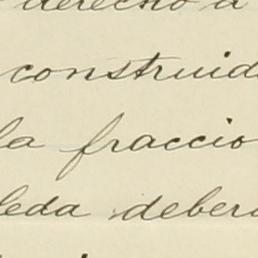 derecho a
construid
la fraccio
leda deber